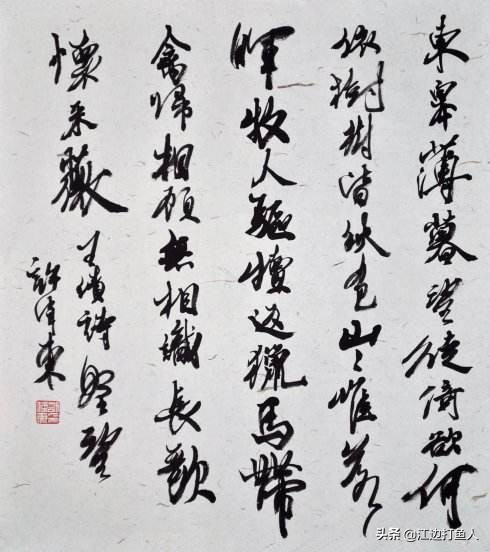 東皋薄暮望徙倚欲何
依樹樹皆秋色山〻惟落
暉牧人驅犢返獵馬帶
禽歸相顧無相識長歌
懷采薇 王績詩野望
許 東
头条 @江边打鱼人